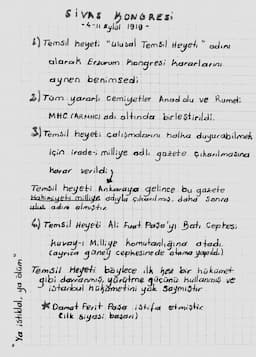 SİVAS KONGRESİ
- 4-11 Eylül 1919 -
1) Temsil heyeti "Ulusal Temsil Heyeti" adını
alarak Erzurum Kongresi kararlarını
aynen benimsedi
2) Tüm yararlı cemiyetler Anadolu ve Rumeli
MHC (ARMHC) adı altında birleştirildi.
3) Temsil heyeti çalışmalarını halka duyurabilmek
için irade-i milliye adlı gazete çıkarılmasına
karar verildi
Temsil heyeti Ankaraya gelince bu gazete
Hakimiyeti milliye adıyla çıkarılmış, daha sonra
ulus adını almıştır
4) Temsil Heyeti Ali Fuat Paşa'yı Batı Cephesi
kuvay-i Milliye komutanlığına atadı
(ayrıca güney cephesinede atama yapıldı)
Temsil Heyeti böylece ilk kez bir hükümet
gibi davranmış, yürütme gücünü kullanmış ve
istanbul hükümetini yok saymıştır
* Damat Ferit Paşa istifa etmiştir
(ilk siyasi başarı)
"Ya istiklal, ya ölüm"